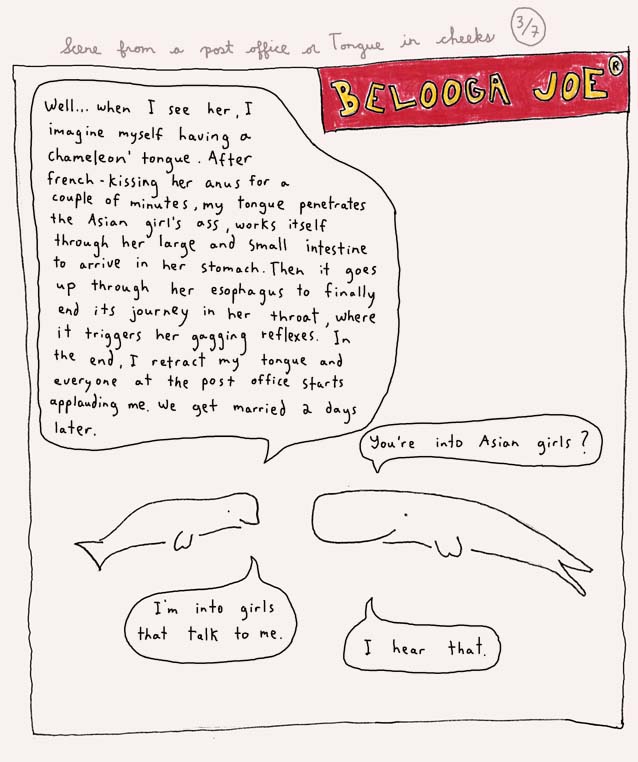 Scene from a post office or Tongue in cheeks 3/7
BELOOGA JOE®
Well... when I see her, I
imagine myself having a
chameleon' tongue. After
french-kissing her anus for a
couple of minutes, my tongue penetrates
the Asian girl's ass, works itself
through her large and small intestine
to arrive in her stomach. Then it goes
up through her esophagus to finally
end its journey in her throat, where
it triggers her gagging reflexes. In
the end, I retract my tongue and
everyone at the post office starts
applauding me. We get married 2 days
later.
You're into Asian girls?
I'm into girls
that talk to me.
I hear that.